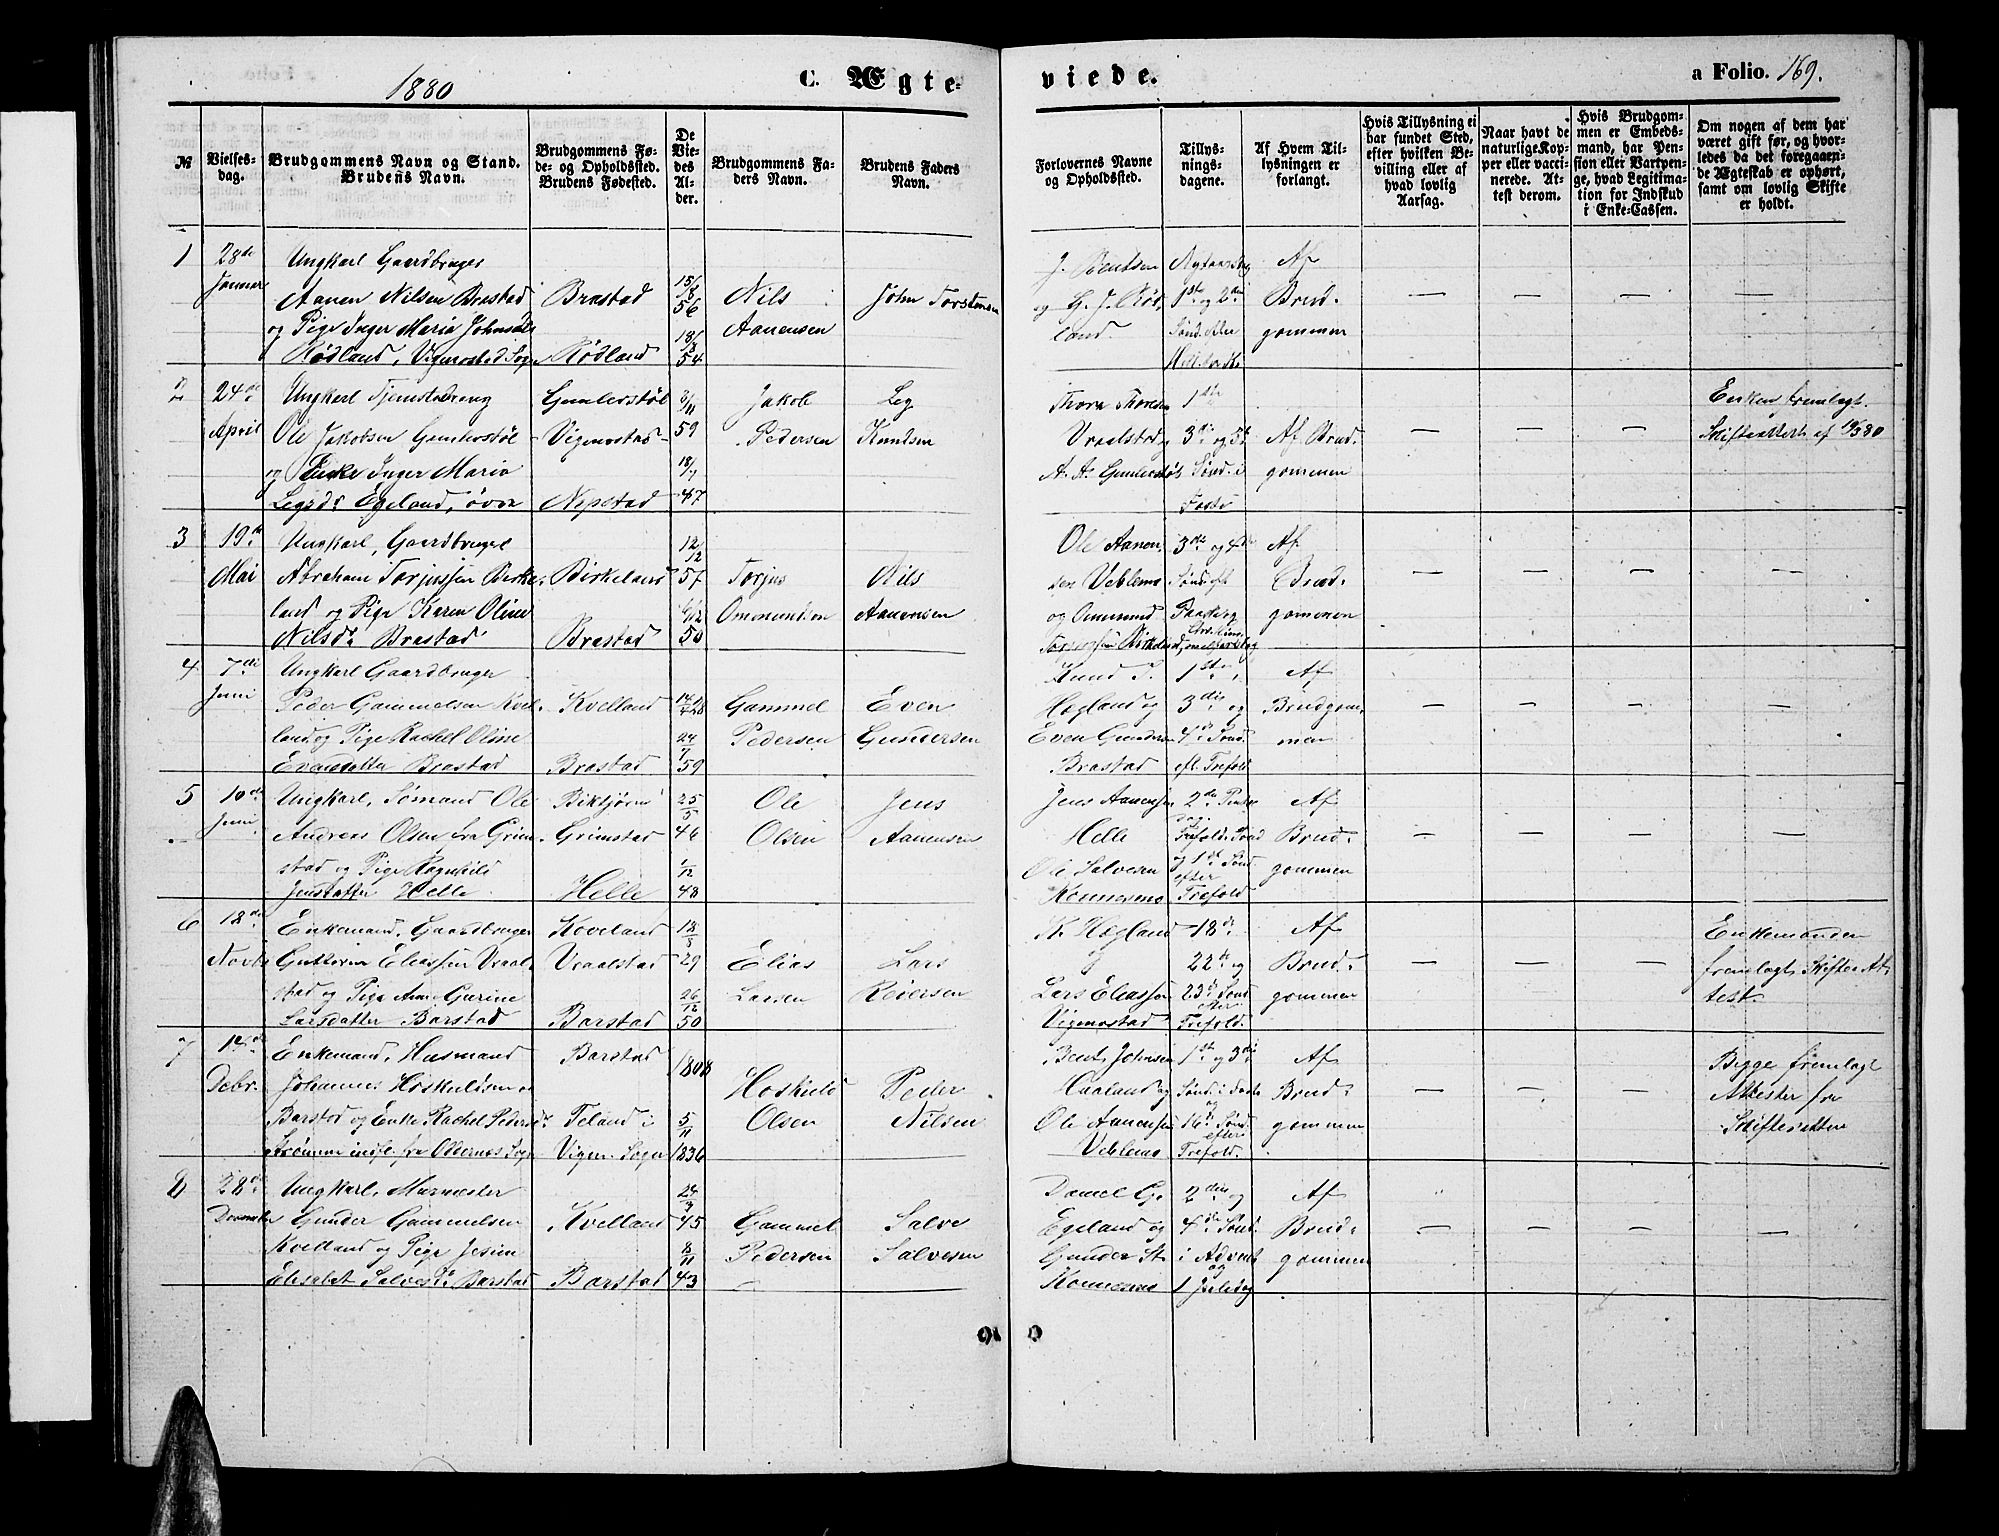 1880
C. Ægte-
viede.
a Folio. 169.
№
Vielses-
dag.
Brudgommens Navn og Stand.
Brudens Navn.
Brudgommens Fø-
de- og Opholdssted.
Brudens Fødested.
De
Vie-
des
Al-
der.
Brudgommens Fa-
ders Navn.
Brudens Faders
Navn.
Forlovernes Navne
og Opholdssted.
Tillys-
nings-
dagene.
Af Hvem Til-
lysningen er
forlangt.
Hvis Tillysning ei
har fundet Sted,
efter hvilken Be-
villing eller af
hvad lovlig
Aarsag.
Naar havt de
naturlige Kop-
per eller vacci-
nerede. At-
test derom.
Hvis Brudgom-
men er Embeds-
mand, har Pen-
sion eller Vartpen-
ge, hvad Legitima-
tion for Indskud
i Enke-Cassen.
Om nogen af dem har
været gift før, og hvor-
ledes da det foregaaen-
de Ægteskab er ophørt,
samt om lovlig Skifte
er holdt.
1
28de
Januar
Ungkarl Gaardbruger
Aanen Nilsen Brastad
og Pige Inger Maria Johnsdr
Rødland, Vigmostad Sogn
Brastad
Rødland
15/8
56
18/8
54
Nils
Aanensen
John Torstensen
J. Bentsen
og G. J. Rød-
land
Nytaarsdag
1ste og 2den
Sønd. efter
Af
Brud-
gommen
— — — —
2
24de
April
Ungkarl
Ole Jakobsen Gumlerstøl
og Enke Inger Maria
Legsdr Egeland, øvre
Gumlerstøl
Vigmostad
Nepstad
3/11
59
47
Jakob
Pedersen
Leg
Knudsen
Thore Thoresen
Vraalstad
A. A. Gumlerstøl
1ste
3die og 5te
Sønd. i
Faste
Af Brud-
gommen
— — —
Enken fremlagt
Skifteattest af
3
19de
Mai
Ungkarl, Gaardbruger
Abraham Torjussen Birke-
land og Pige Karen Oline
Nilsdr Brastad
Birkeland
Brastad
12/12
57
50
Torjus
Omundsen
Nils
Aanensen
Ole Aanen-
sen Veblemo
og Ommund
Torjussen Birkeland
3die og 4de
Sønd. eft.
Paaske og
Chr. Him-
melfartsdag
Af
Brud-
gommen
— — — —
4
7de
Juni
Ungkarl Gaardbruger
Peder Gammelsen Kvel-
land og Pige Rachel Oline
Evensdatter Brastad
Kvelland
Brastad
24/7
59
Gammel
Pedersen
Even
Gundersen
Knud S.
Høgland og
Even Gundersen
Brastad
1ste,
3die og
4de Sønd.
eft. Trefold.
Af
Brudgom-
men
— — — —
5
10de
Juni
Ungkarl, Sømand Ole
Andreas Olsen fra Grim-
stad og Pige Ragnhild
Jensdatter Helle
Grimstad
Helle
25/5
46
1/12
48
Ole
Olsen
Jens
Aanensen
Jens Aanensen
Helle
Ole Salvesen
Konnesmo
2den Pintse-
dag,
Trefold. Sønd
og 1ste Sønd.
efter
Trefold.
Af
Brud-
gommen
— — — —
6
18de
Novbr
Enkemand, Gaardbruger
Guttorm Eliassen Vraal-
stad og Pige Ane Gurine
Larsdatter Barstad
Koveland
Vraalstad
Barstad
18/8
29
26/12
50
Elias
Larsen
Lars
Reiersen
K. Høgland
og
Lars Eliassen
Vigmostad
18de
22de og
23de Sønd.
efter
Trefold.
Af
Brud-
gommen
— — —
Enkemanden
fremlagt Skifte-At-
test
7
14de
Debr.
Enkemand, Husmand
Johannes Hoskuldsen
Barstad og Enke Rachel Pedersdr
Strømme indfl. fra Oddernes Sogn
Barstad
Teland i
Vigm. Sogn
1808
5/11
1836
Hoskuld
Olsen
Peder
Nilsen
Bent Johnsen
Haaland og
Ole Aanensen
Veblemo
1ste og 3die
Sønd. i Faste
og
16de Sønd.
efter
Trefold.
Af
Brud-
gommen
— — —
Begge fremlagt
Attester fra
Skifteretten
8
28de
December
Ungkarl, Murmester
Gunder Gammelsen
Kvelland og Pige Jesine
Elisabet Salvesdr Barstad
Kvelland
Barstad
45
8/11
43
Gammel
Pedersen
Salve
Salvesen
Daniel G.
Egeland og
Gunder St.
Konnesmo
2den og
4de Sønd.
i Advent
og
1 Juledag
Af
Brud-
gommen
— — — —